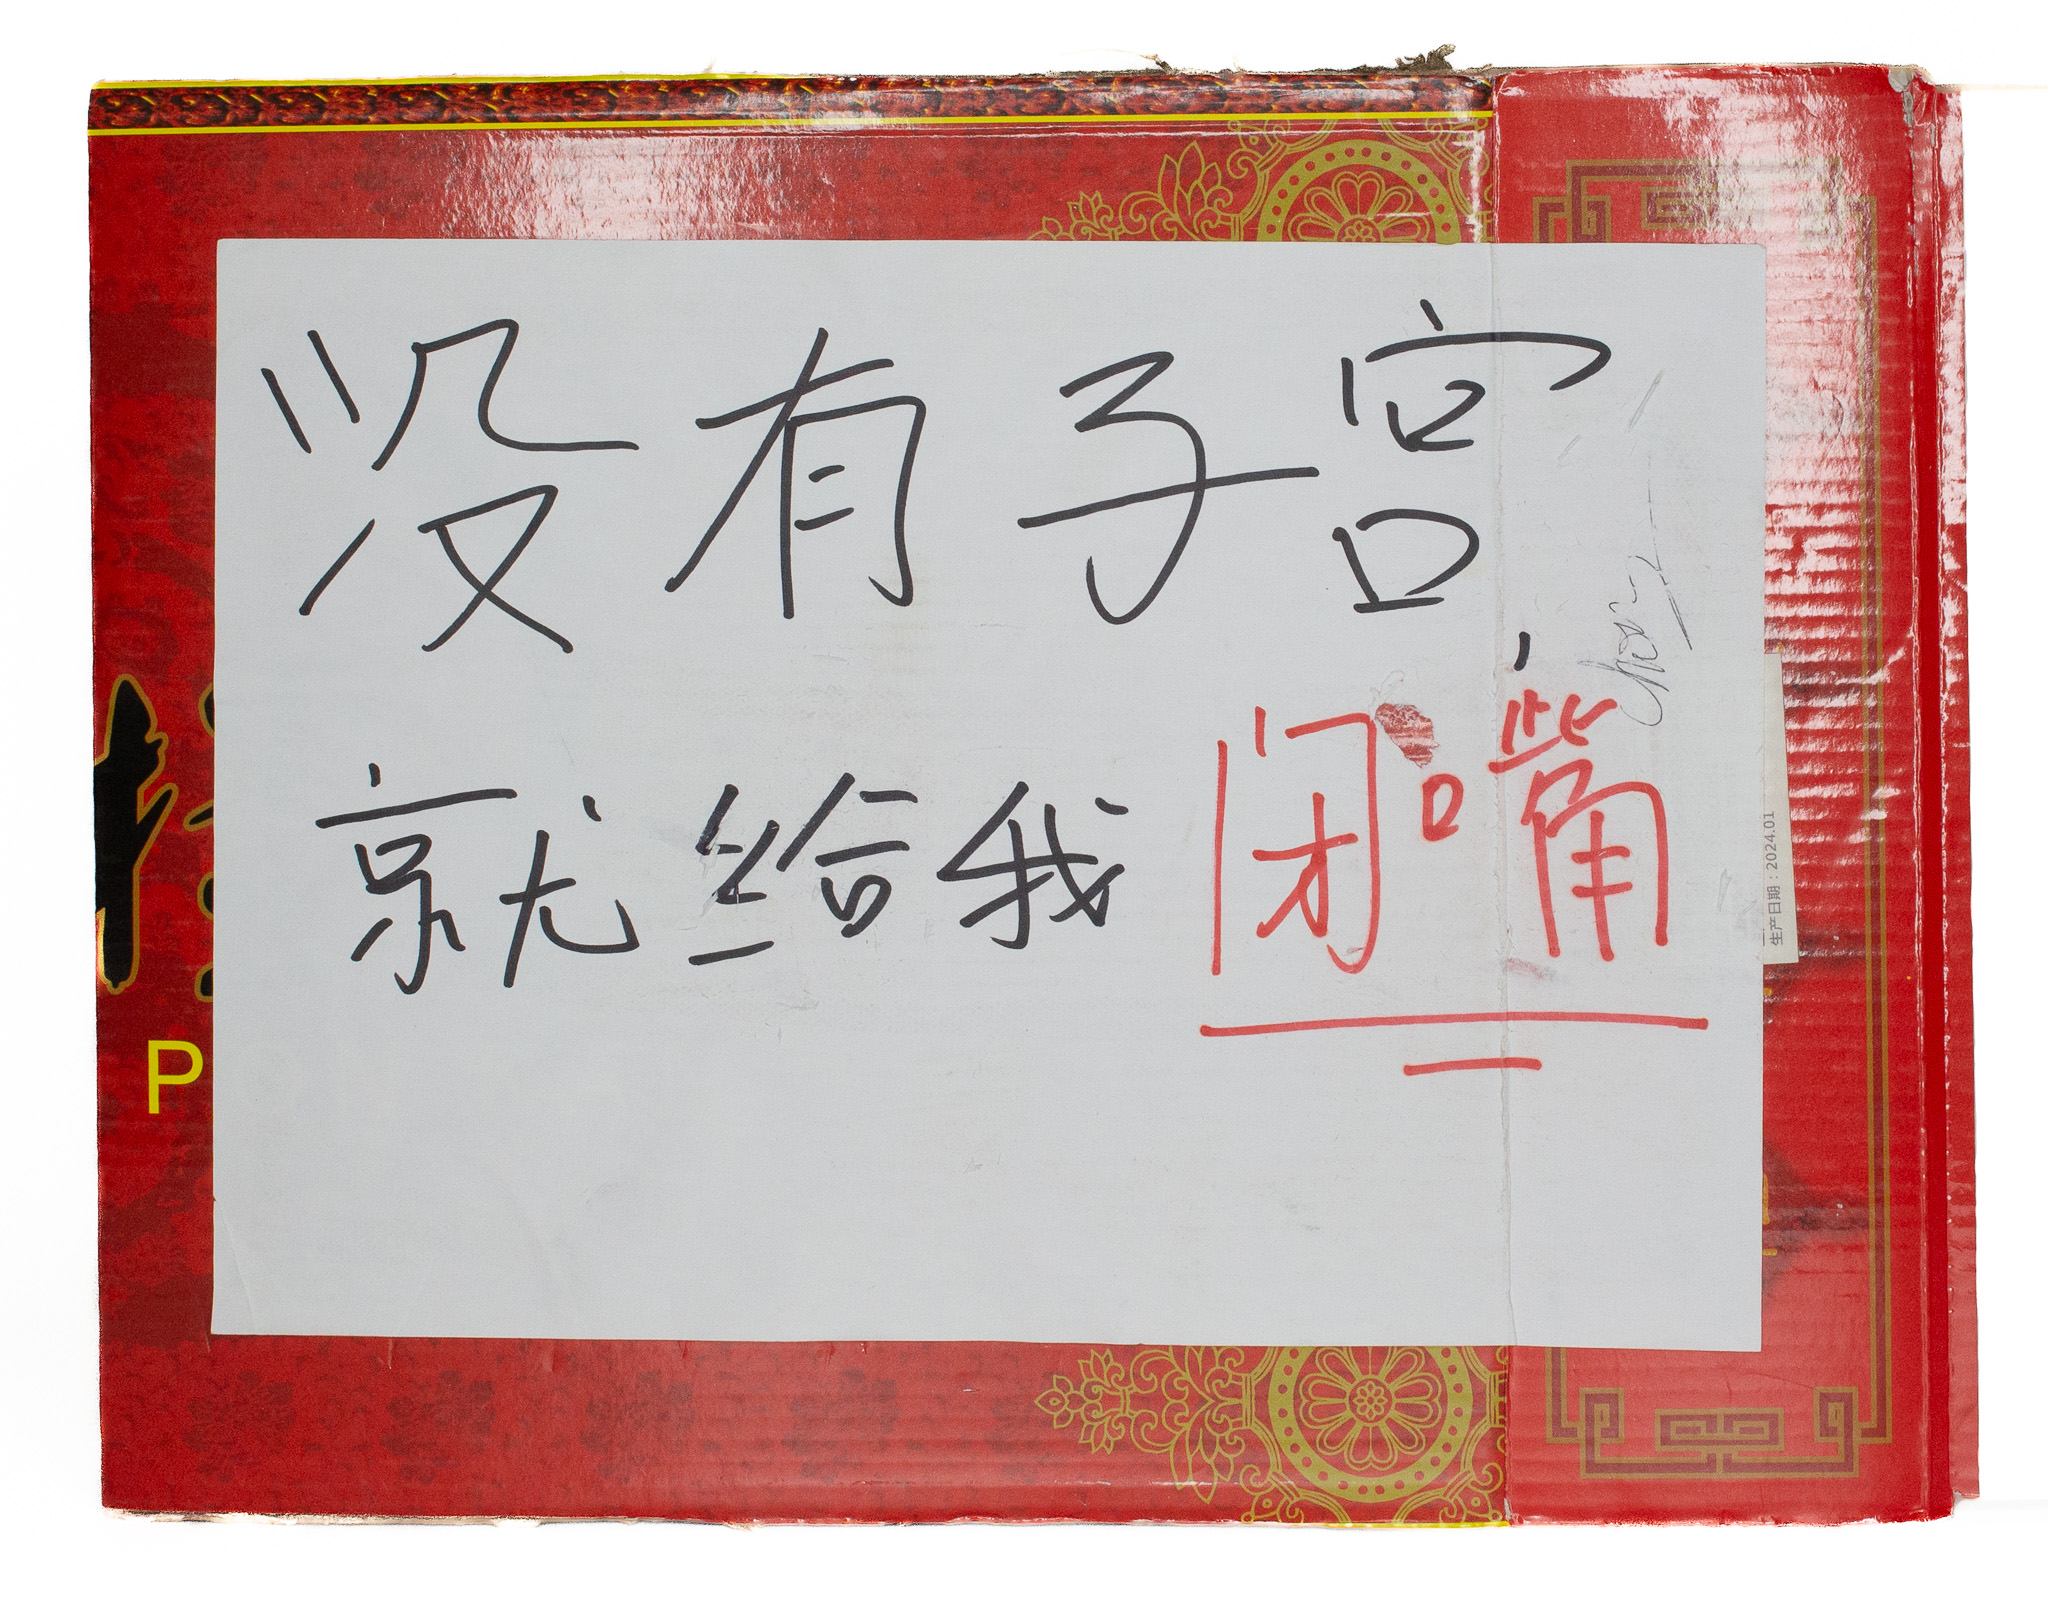 没有子宫,
就给我闭嘴
生产日期：2024.01
P